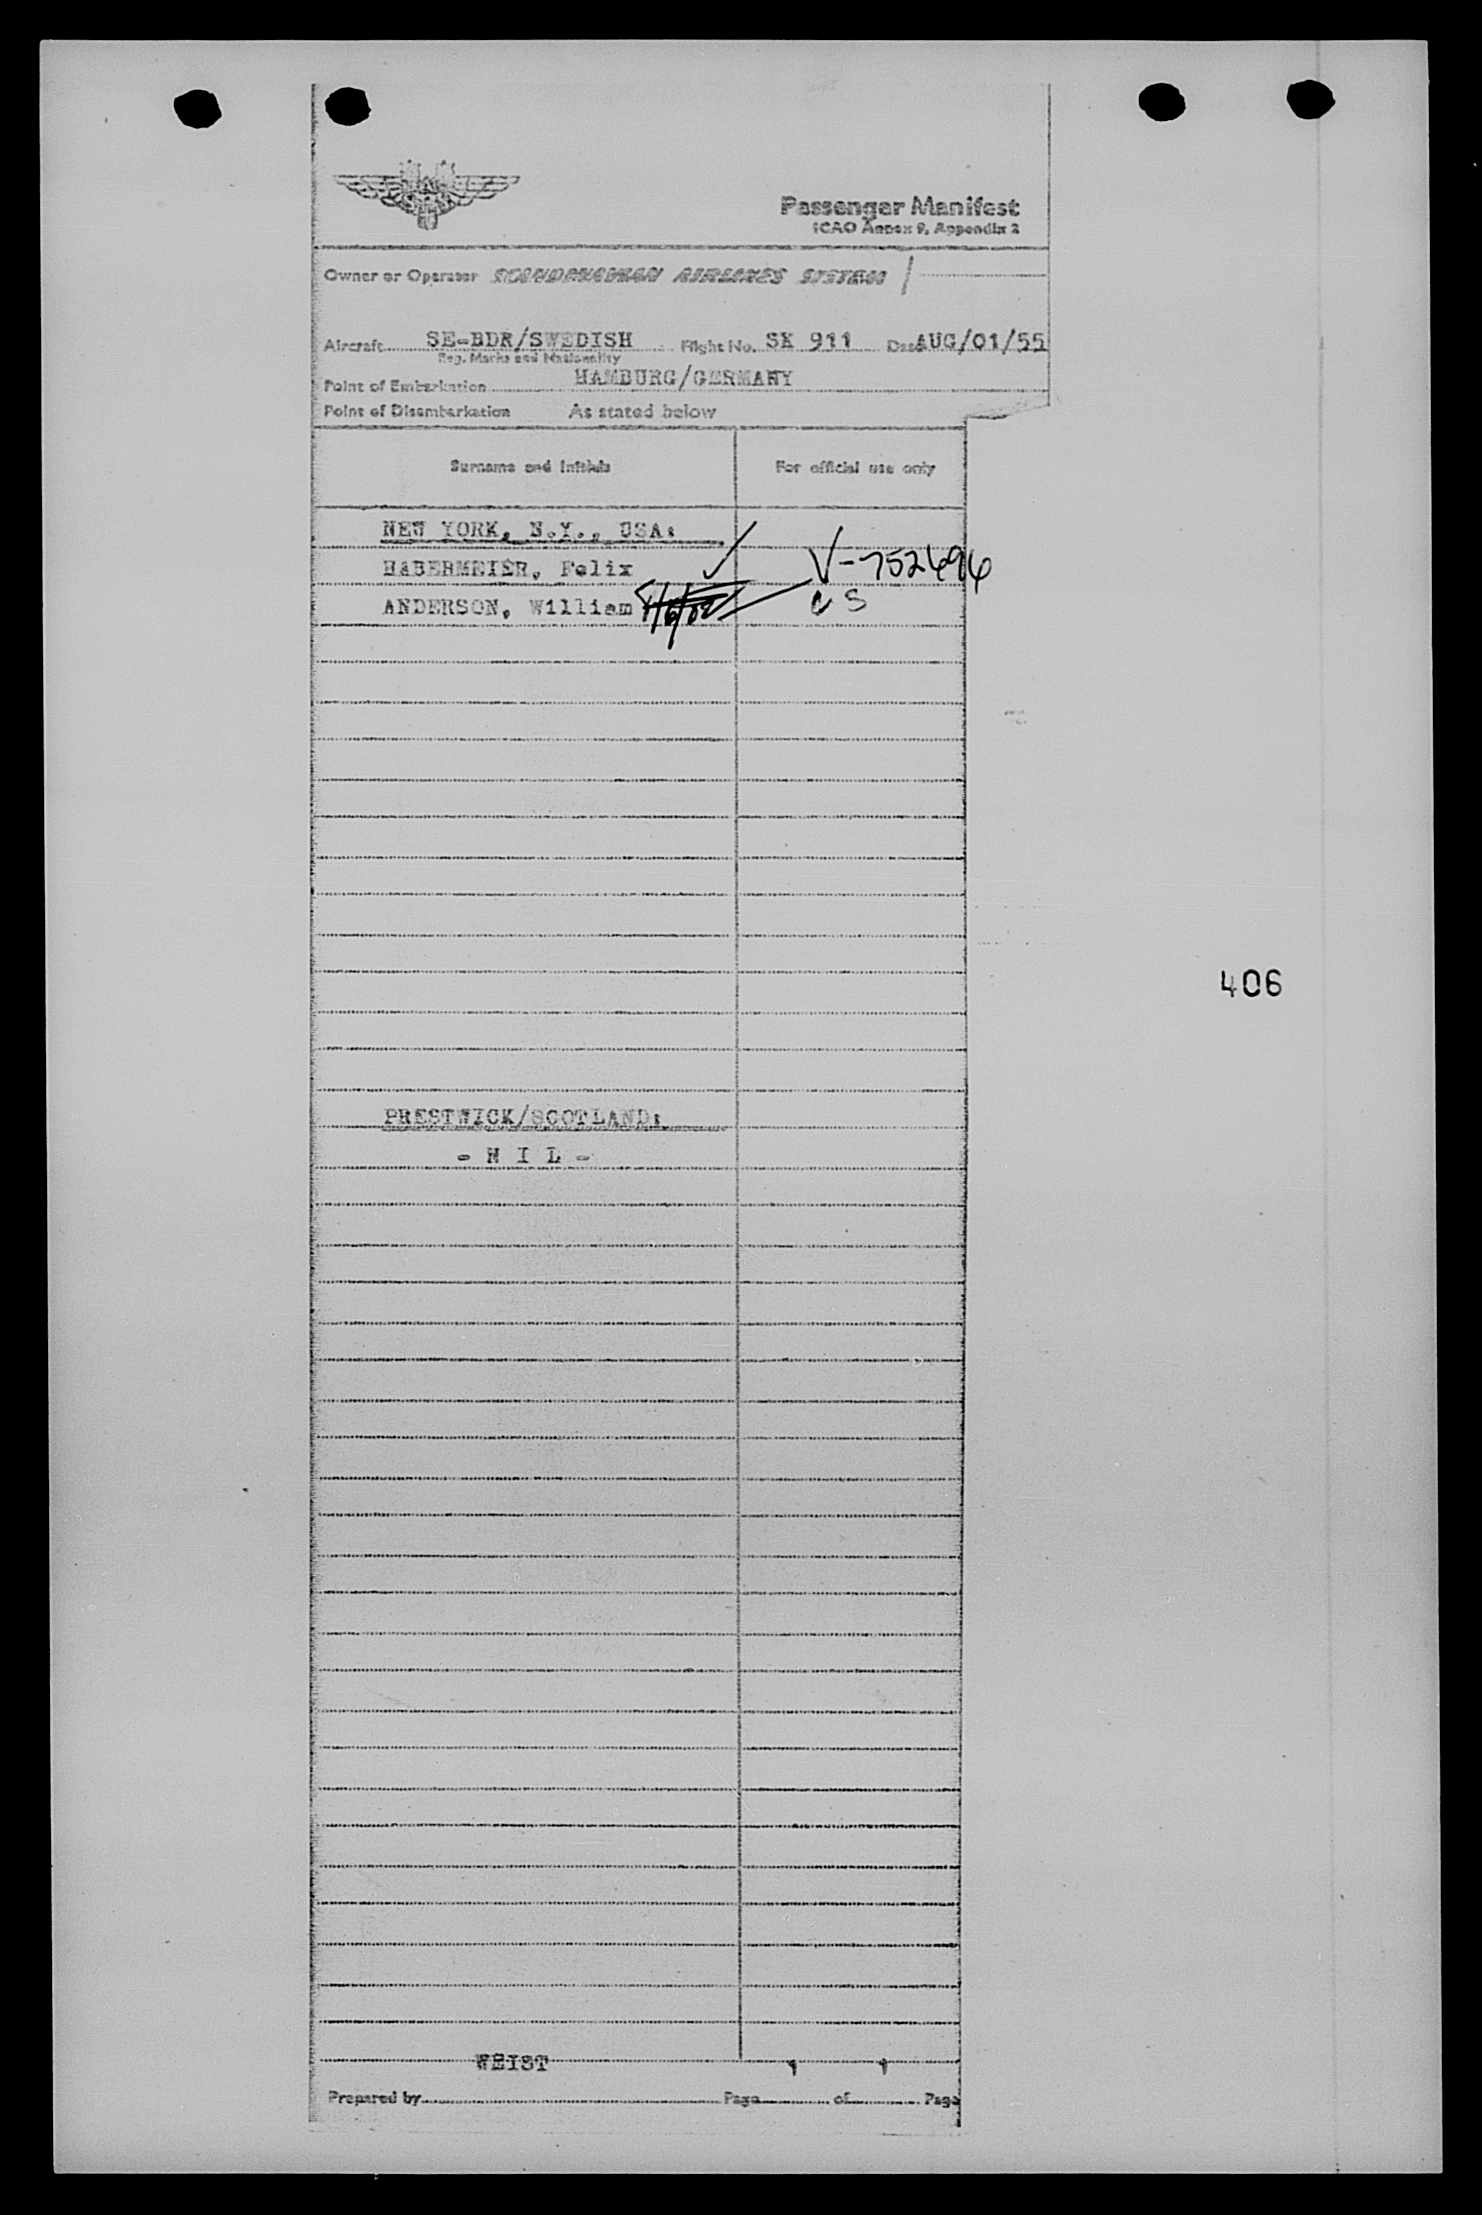 Passenger Manifest
ICAO Annex 9, Appendix 2
Owner or Operator SCANDINAVIAN AIRLINES SYSTEM
Aircraft SE-BDR/SWEDISH Flight No. SK 911 Date AUG/01/55
Reg. Marks and Nationality
Point of Embarkation HAMBURG/GERMANY
Point of Disembarkation As stated below
Surname and Initials For official use only
NEW YORK, N.Y., USA:
HABERMEIER, Felix V-752494
ANDERSON, William CS
406
PRESTWICK/SCOTLAND:
- N I L -
WEIST 1 1
Prepared by Page of Page